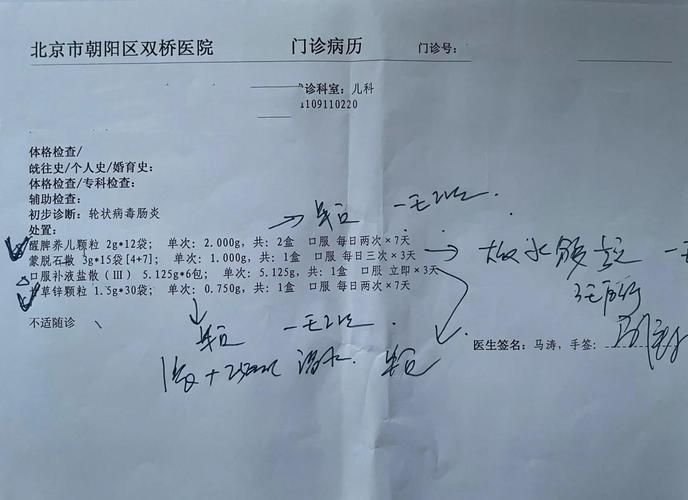 北京市朝阳区双桥医院 门诊病历 门诊号：
诊科室：儿科
109110220
体格检查/
既往史/个人史/婚育史：
体格检查/专科检查：
辅助检查：
初步诊断：轮状病毒肠炎
处置：
醒脾养儿颗粒 2g*12袋； 单次：2.000g，共：2盒 口服 每日两次×7天
蒙脱石散 3g*15袋[4+7]； 单次：1.000g，共：1盒 口服 每日三次×3天
口服补液盐散（III） 5.125g*6包； 单次：5.125g，共：1盒 口服 立即×3天
草锌颗粒 1.5g*30袋； 单次：0.750g，共：1盒 口服 每日两次×7天
一天2次.
一天2次.
不适随诊
医生签名：马涛，手签：
1袋+250ml 温水.